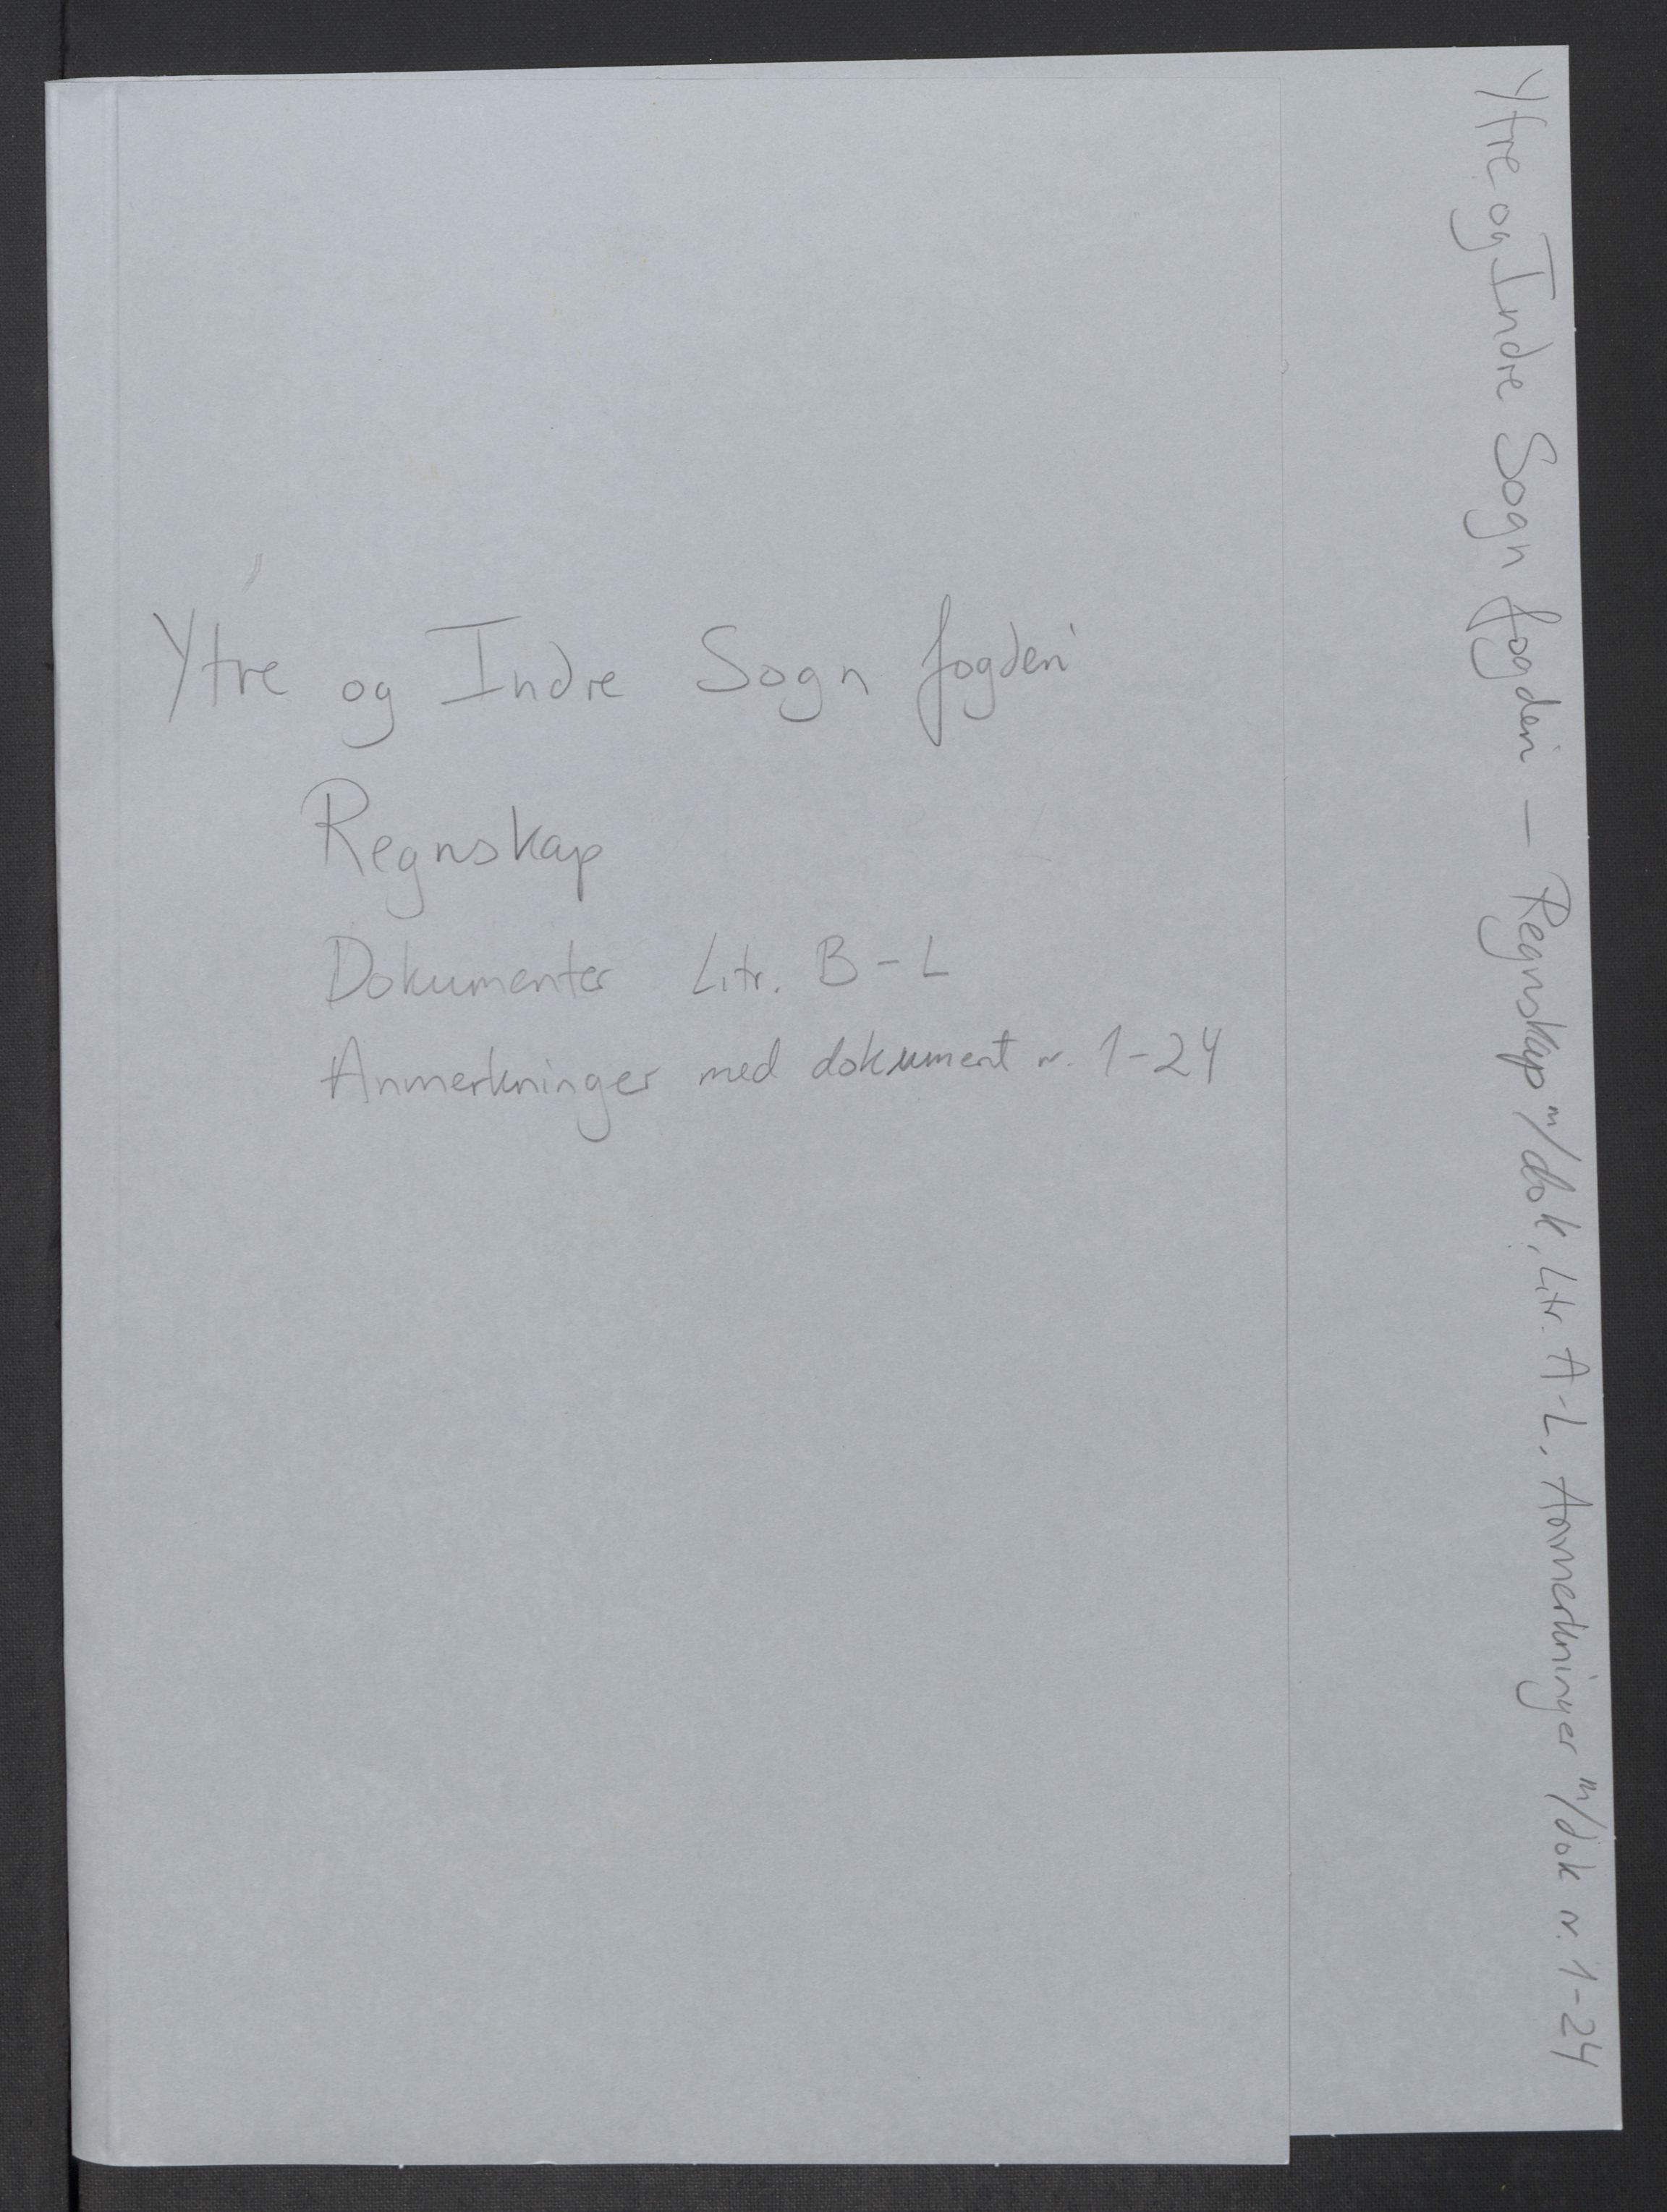 Ytre og Indre Sogn fogderi
Regnskap
Dokumenter Litr. B-L
Anmerkninger med dokument nr. 1-24
Ytre og Indre Sogn fogderi — Regnskap m/dok. Litr. A-L, Anmerkninger m/dok nr. 1-24